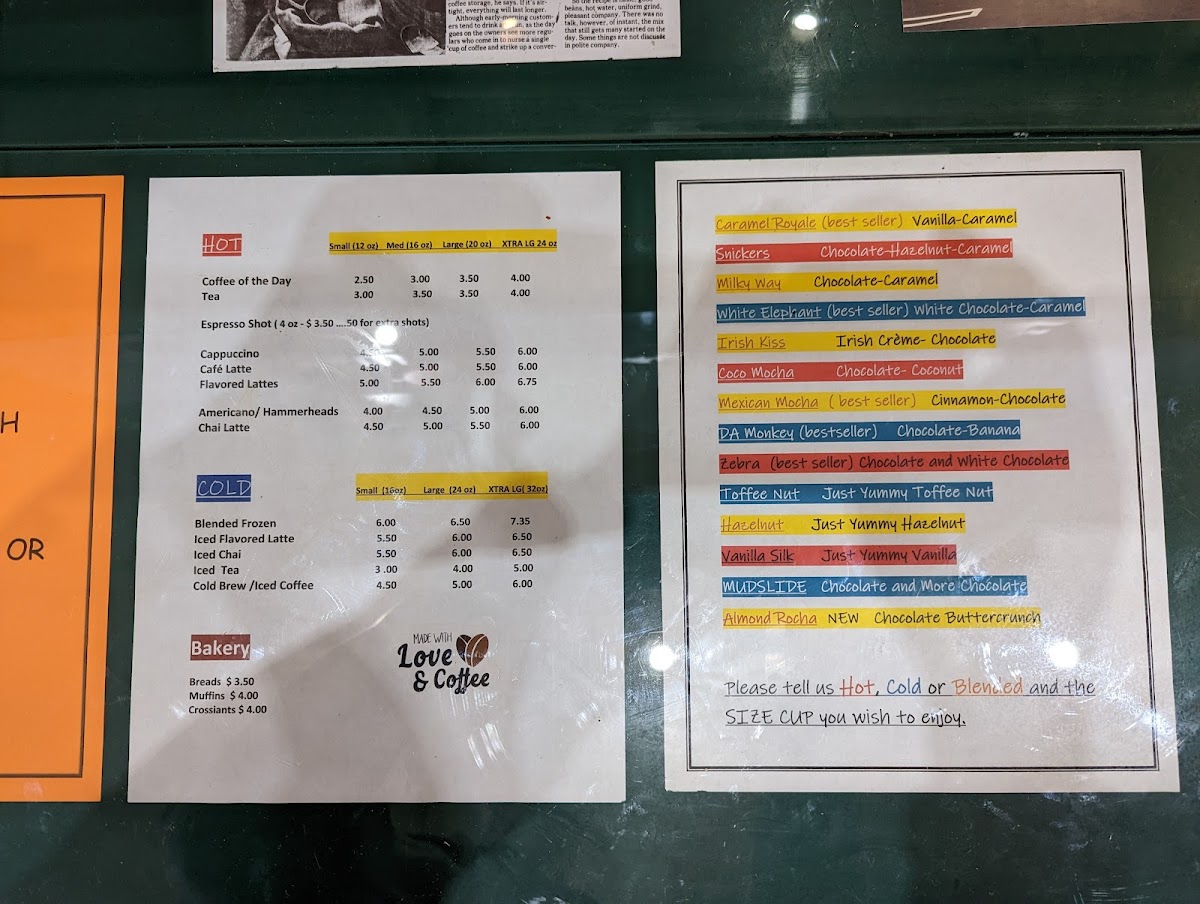 coffee storage, he says. If it's air-
tight, everything will last longer.
Although early-morning custom-
ers tend to drink and run, as the day
goes on the owners see more regu-
lars who come in to nurse a single
cup of coffee and strike up a conver-
beans, hot water, uniform grind,
pleasant company. There was no
talk, however, of instant, the mix
that still gets many started on the
day. Some things are not discuss
in polite company.
H
OR
HOT Small (12 oz) Med (16 oz) Large (20 oz) XTRA LG 24 oz
Coffee of the Day 2.50 3.00 3.50 4.00
Tea 3.00 3.50 3.50 4.00
Espresso Shot ( 4 oz - $ 3.50 ....50 for extra shots)
Cappuccino 4.50 5.00 5.50 6.00
Café Latte 4.50 5.00 5.50 6.00
Flavored Lattes 5.00 5.50 6.00 6.75
Americano/ Hammerheads 4.00 4.50 5.00 6.00
Chai Latte 4.50 5.00 5.50 6.00
COLD Small (16oz) Large (24 oz) XTRA LG( 32oz)
Blended Frozen 6.00 6.50 7.35
Iced Flavored Latte 5.50 6.00 6.50
Iced Chai 5.50 6.00 6.50
Iced Tea 3 .00 4.00 5.00
Cold Brew /Iced Coffee 4.50 5.00 6.00
Bakery
Breads $ 3.50
Muffins $ 4.00
Crossiants $ 4.00
MADE WITH
Love
& Coffee
Caramel Royale (best seller) Vanilla-Caramel
Snickers Chocolate-Hazelnut-Caramel
Milky Way Chocolate-Caramel
White Elephant (best seller) White Chocolate-Caramel
Irish Kiss Irish Crème- Chocolate
Coco Mocha Chocolate- Coconut
Mexican Mocha ( best seller) Cinnamon-Chocolate
DA Monkey (bestseller) Chocolate-Banana
Zebra (best seller) Chocolate and White Chocolate
Toffee Nut Just Yummy Toffee Nut
Hazelnut Just Yummy Hazelnut
Vanilla Silk Just Yummy Vanilla
MUDSLIDE Chocolate and More Chocolate
Almond Rocha NEW Chocolate Buttercrunch
Please tell us Hot, Cold or Blended and the
SIZE CUP you wish to enjoy.